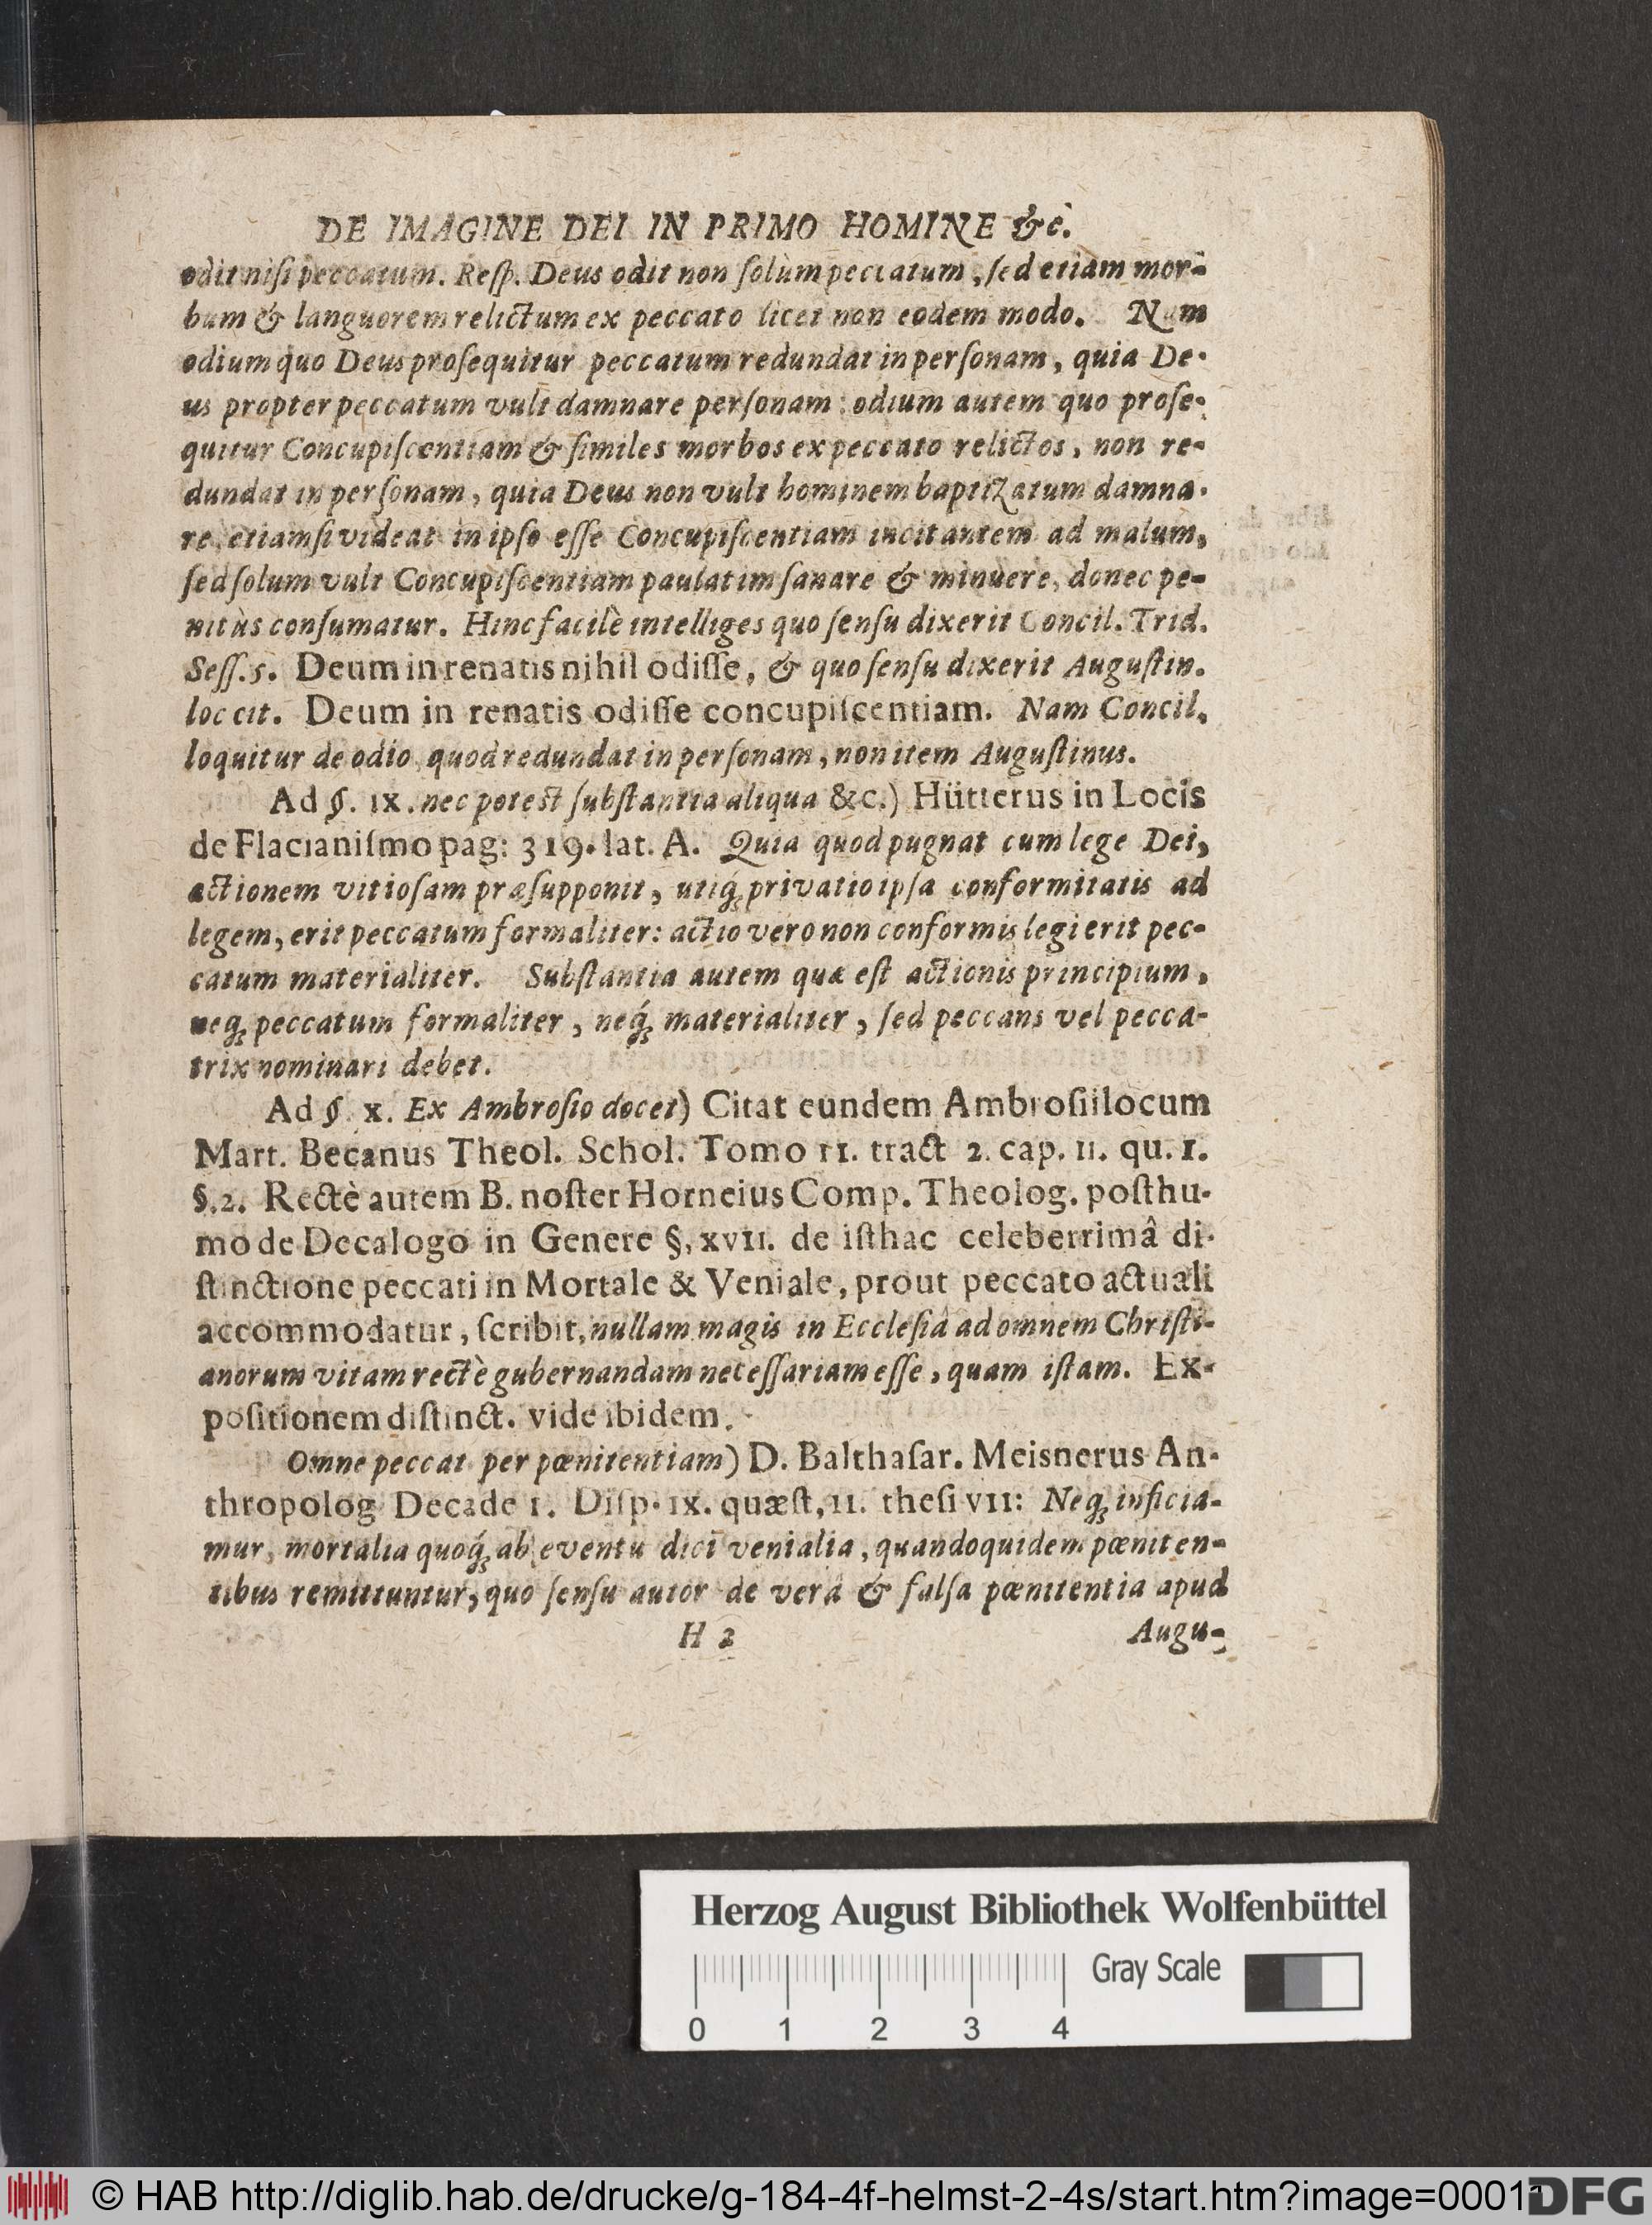 DE IMAGINE DEI IN PRIMO HOMINE &c.
odit nisi peccatum. Resp. Deus odit non solùm peccatum, sed etiam mor-
bum & languorem relictum ex peccato licet non eodem modo. Nam
odium quo Deus prosequitur peccatum redundat in personam, quia De-
us propter peccatum vult damnare personam: odium autem quo prose-
quitur Concupiscentiam & similes morbos ex peccato relictos, non re-
dundat in personam, quia Deus non vult hominem baptizatum damna-
re, etiamsi videat in ipso esse Concupiscentiam incitantem ad malum,
sed solum vult Concupiscentiam paulatim sanare & minuere, donec pe-
nitùs consumatur. Hinc facilè intelliges quo sensu dixerit Concil. Trid.
Sess. 5. Deum in renatis nihil odisse, & quo sensu dixerit Augustin.
loc cit. Deum in renatis odisse concupiscentiam. Nam Concil.
loquitur de odio, quod redundat in personam, non item Augustinus.
Ad §. IX. nec potest substantia aliqua &c.) Hütterus in Locis
de Flacianismo pag: 319. lat. A. Quia quod pugnat cum lege Dei,
actionem vitiosam præsupponit, utiq́; privatio ipsa conformitatis ad
legem, erit peccatum formaliter: actio vero non conformis legi erit pec-
catum materialiter. Substantia autem quæ est actionis principium,
neq; peccatum formaliter, neq́; materialiter, sed peccans vel pecca-
trix nominari debet.
Ad §. X. Ex Ambrosio docet) Citat eundem Ambrosii locum
Mart. Becanus Theol. Schol. Tomo II. tract 2. cap. II. qu. 1.
§.2. Rectè autem B. noster Horneius Comp. Theolog. posthu-
mo de Decalogo in Genere §. XVII. de isthac celeberrimâ di-
stinctione peccati in Mortale & Veniale, prout peccato actuali
accommodatur, scribit, nullam magis in Ecclesiâ ad omnem Christi-
anorum vitam rectè gubernandam necessariam esse, quam istam. Ex-
positionem distinct. vide ibidem.
Omne peccat per pœnitentiam) D. Balthasar. Meisnerus An-
thropolog Decade I. Disp. IX. quæst, II. thesi VII: Neq; inficia-
mur, mortalia quoq́; ab eventu dici venialia, quandoquidem pœniten-
tibus remittuntur, quo sensu autor de verâ & falsa pœnitentia apud
H 2
Augu-
Herzog August Bibliothek Wolfenbüttel
Gray Scale
0 1 2 3 4
© HAB http://diglib.hab.de/drucke/g-184-4f-helmst-2-4s/start.htm?image=00011
DFG